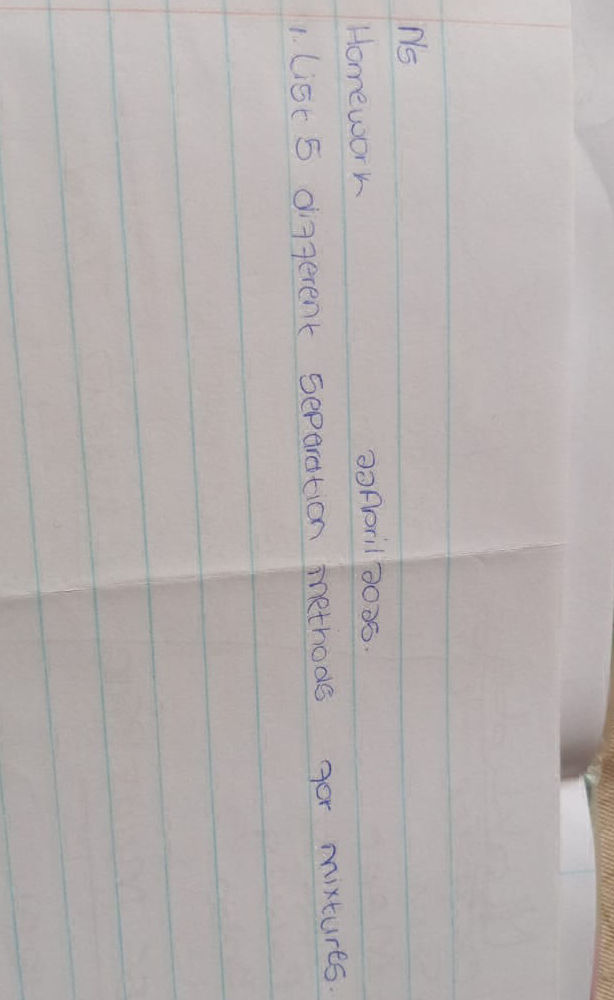 NS
Homework 22 April 2026.
1. List 5 different separation methods for mixtures.